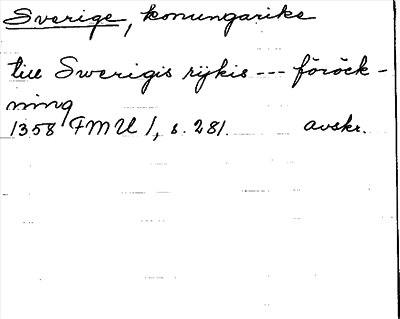 Sverige, konungarike
till Swerigis rijkis --- föröck-
ning
1358 FMU 1, s. 281. avskr.